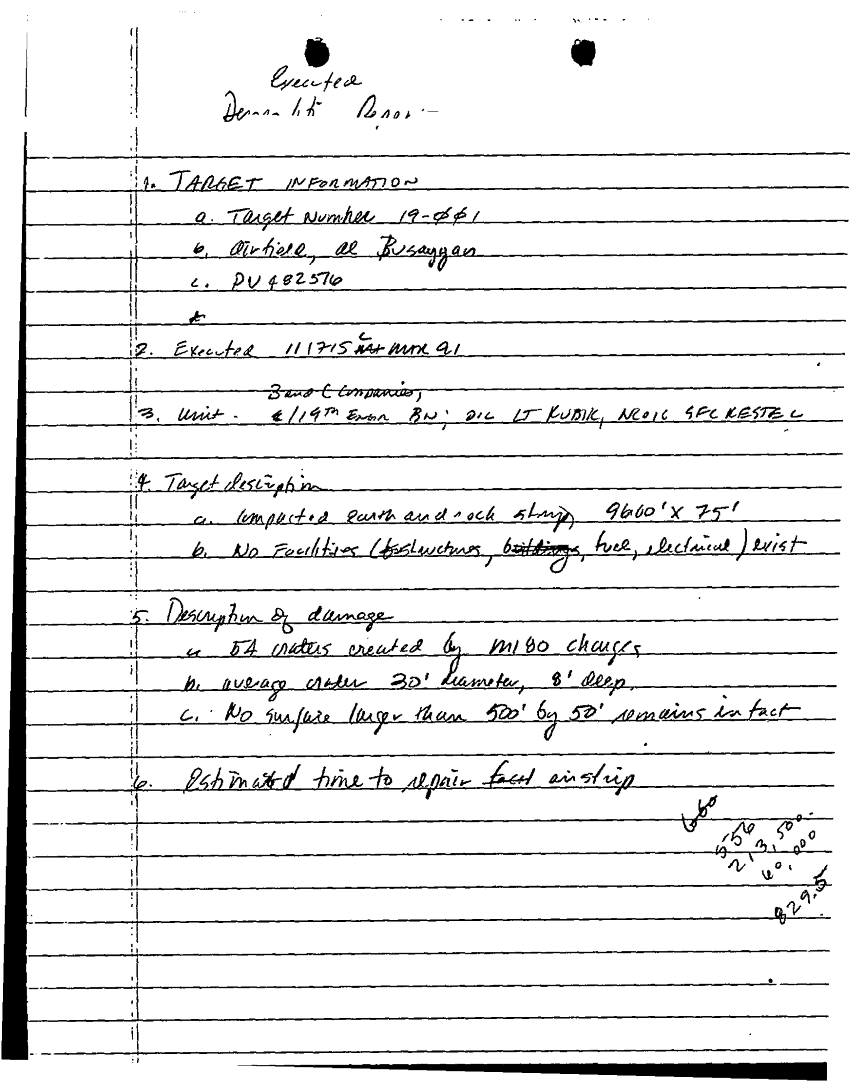 Executed
1. TARGET INFORMATION
a. Target Number 19-ØØ1
b. Airfield, al Busayyan
c. PU 482576
2. Executed 111715 C MAR 91
B and C Companies,
3. Unit - 19TH Engr BN; OIC LT KUBIK, NCOIC SFC KESTEL
4. Target description
a. Compacted earth and rock strip, 9600' X 75'
b. No Facilities (structures, buildings, fuel, electrical) exist
5. Description of damage
a. 54 craters created by M180 charges
b. average crater 30' diameter, 8' deep.
c. No surface larger than 500' by 50' remains intact
6. Estimated time to repair airstrip
660
556
213,500.
60,000
829.5